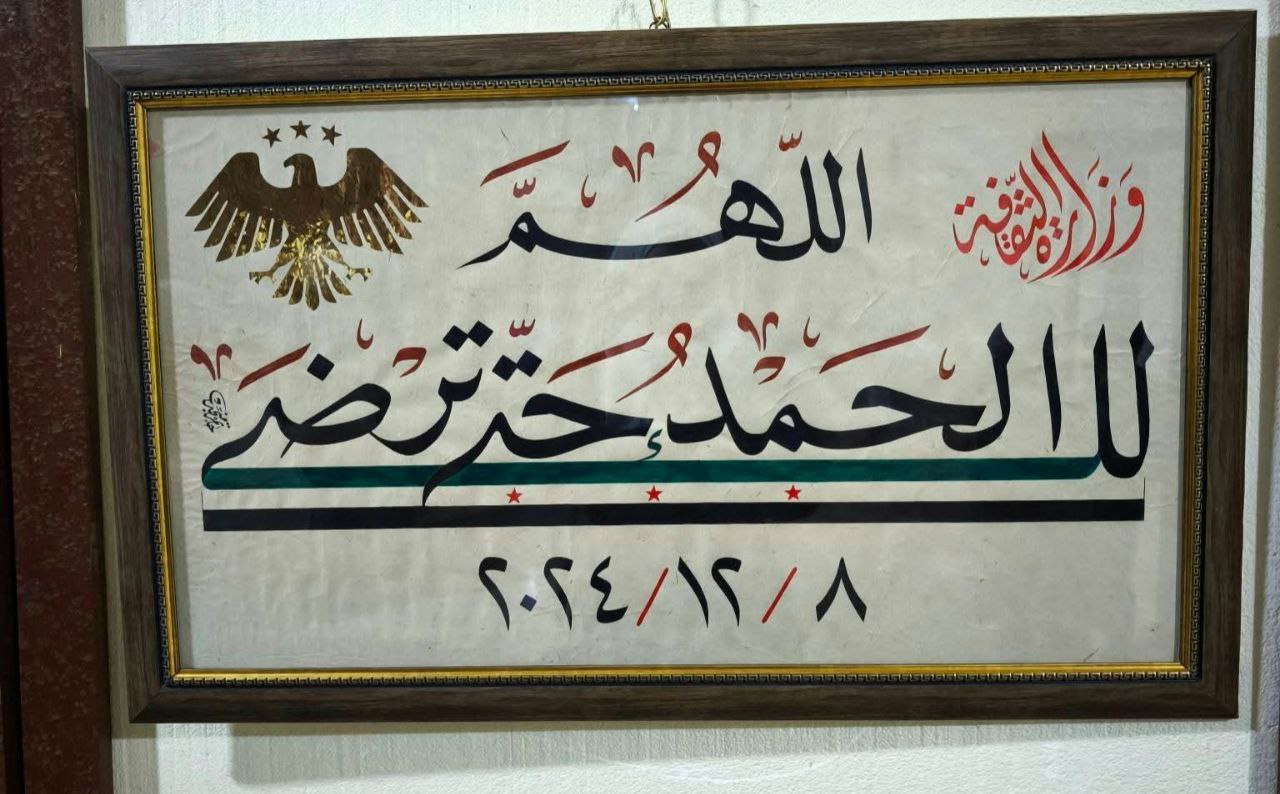 وَزَارَة الثّقَافَة
اللّهُمَّ
لك الحَمْدُ حَتّى تَرْضَى
٨/١٢/٢٠٢٤